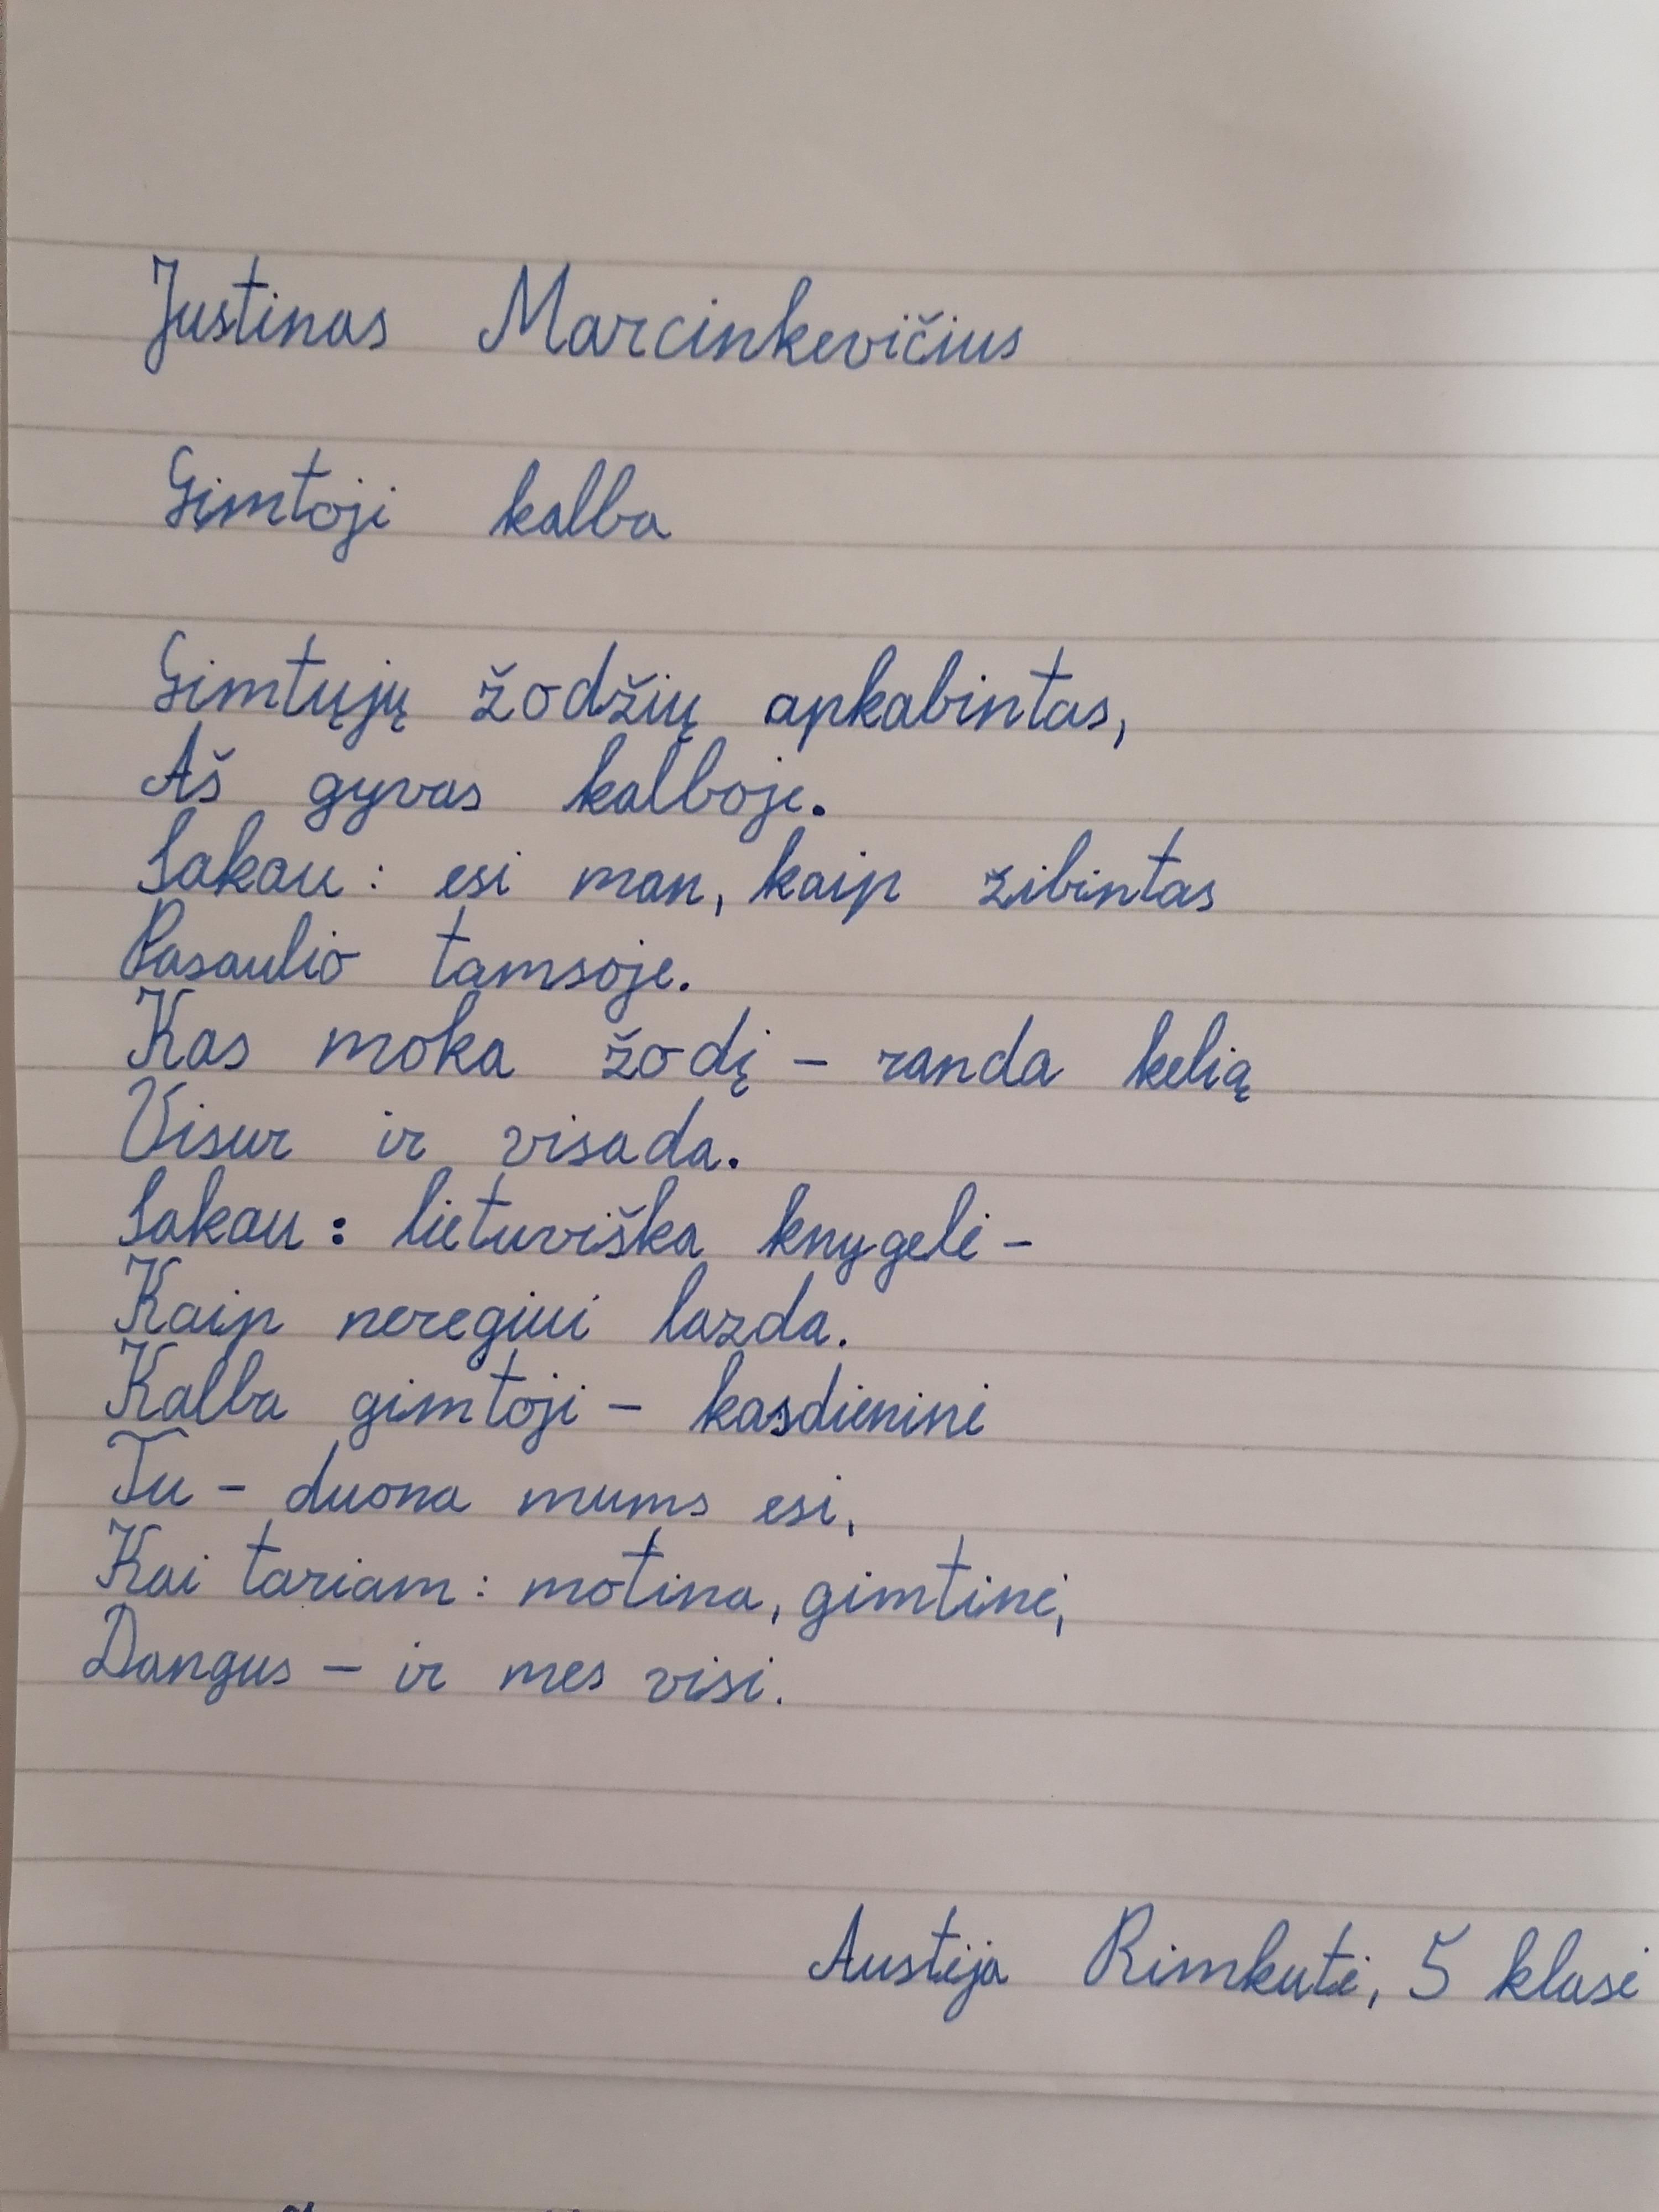 Justinas Marcinkevičius
Gimtoji kalba
Gimtųjų žodžių apkabintas,
Aš gyvas kalboje.
Sakau: esi man, kaip zibintas
Pasaulio tamsoje.
Kas moka žodį – randa kelią
Visur ir visada.
Sakau: lietuviška knygelė –
Kaip neregiui lazda.
Kalba gimtoji – kasdieninė
Tu – duona mums esi,
Kai tariam: motina, gimtinė,
Dangus – ir mes visi.
Austėja Rimkutė, 5 klasė